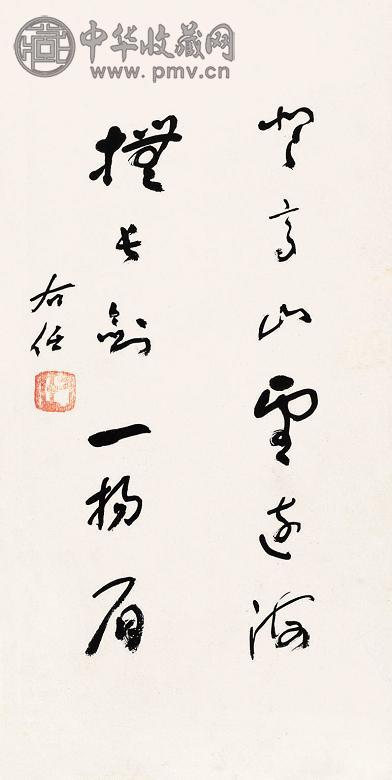 中华收藏网
www.pmv.cn
登高山望远海
抚长剑一扬眉
右任